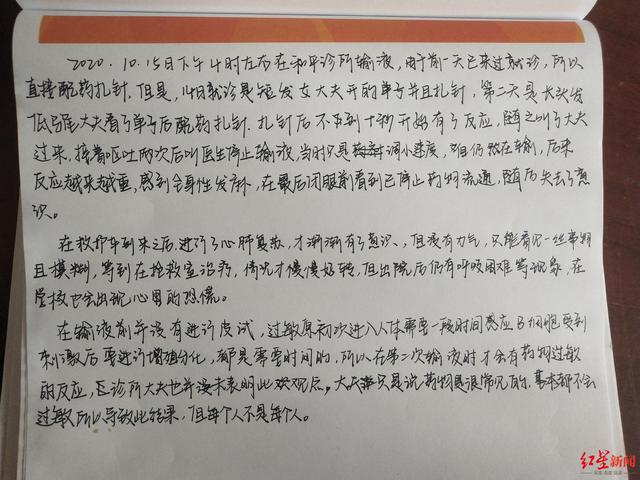 2020.10.15日下午4时左右在和平诊所输液，由于前一天已来过就诊，所以
直接配药扎针。但是，14日就诊是短发女大夫开的单子并且扎针，第二天是长头发
低马尾大夫看了单子后配药扎针。扎针后不到十秒开始有了反应，随之叫了大夫
过来，接着呕吐两次后叫医生停止输液，当时只是调小速度，但仍然在输，后来
反应越来越重，感到全身性发麻，在最后闭眼前看到已停止药物流通，随后失去了意
识。
在救护车到来之后进行了心肺复苏，才渐渐有了意识，但没有力气，只能看见一丝事物
且模糊，等到在抢救室治疗，情况才慢慢好转，但出院后仍有呼吸困难等现象，在
学校也会出现心里的恐慌。
在输液前并没有进行皮试，过敏原初次进入人体需要一段时间感应B细胞受到
刺激后要进行增殖分化，都是需要时间的，所以在第二次输液时才会有药物过敏
的反应，且诊所大夫也并没未表明此观点。大夫只是说药物是很常见的，基本都不会
过敏所以导致此结果，但每个人不是每个人。
红星新闻